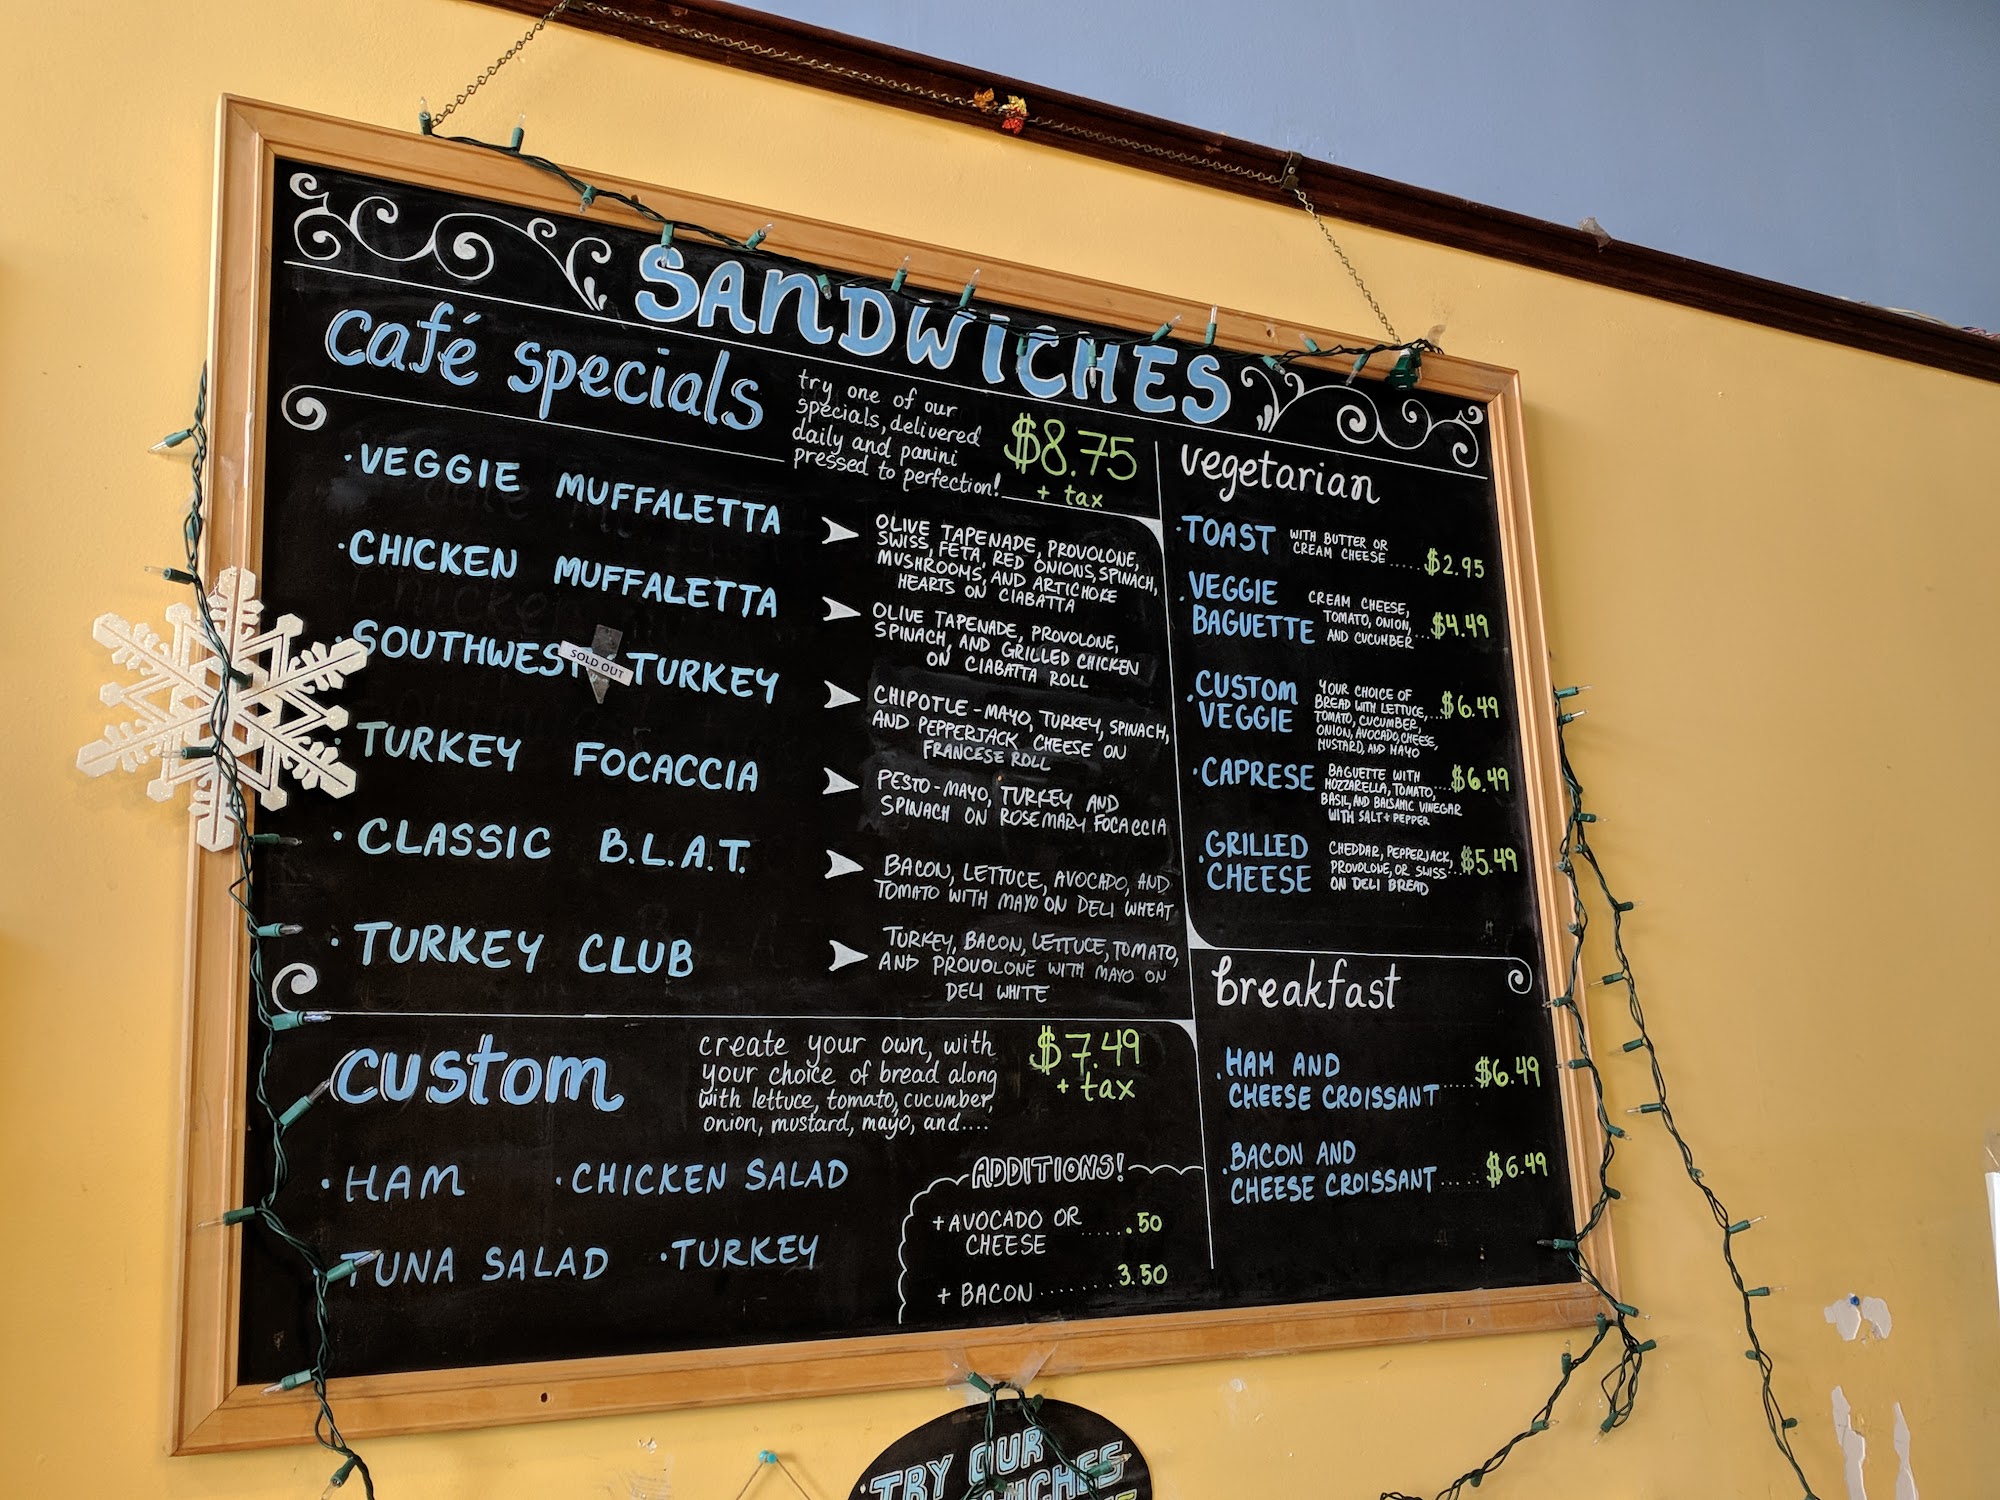 SANDWICHES
café specials
try one of our
specials, delivered
daily and panini
pressed to perfection!
$8.75
+ tax
· VEGGIE MUFFALETTA
OLIVE TAPENADE, PROVOLONE,
SWISS, FETA, RED ONIONS, SPINACH,
MUSHROOMS, AND ARTICHOKE
HEARTS ON CIABATTA
· CHICKEN MUFFALETTA
OLIVE TAPENADE, PROVOLONE,
SPINACH, AND GRILLED CHICKEN
ON CIABATTA ROLL
· SOUTHWEST TURKEY
SOLD OUT
CHIPOTLE-MAYO, TURKEY, SPINACH,
AND PEPPERJACK CHEESE ON
FRANCESE ROLL
· TURKEY FOCACCIA
PESTO-MAYO, TURKEY AND
SPINACH ON ROSEMARY FOCACCIA
· CLASSIC B.L.A.T.
BACON, LETTUCE, AVOCADO, AND
TOMATO WITH MAYO ON DELI WHEAT
· TURKEY CLUB
TURKEY, BACON, LETTUCE, TOMATO,
AND PROVOLONE WITH MAYO ON
DELI WHITE
custom
create your own, with
your choice of bread along
with lettuce, tomato, cucumber,
onion, mustard, mayo, and....
$7.49
+ tax
· HAM · CHICKEN SALAD
TUNA SALAD · TURKEY
ADDITIONS!
+ AVOCADO OR ..... .50
CHEESE
+ BACON ....... 3.50
vegetarian
· TOAST WITH BUTTER OR
CREAM CHEESE ..... $2.95
· VEGGIE BAGUETTE
CREAM CHEESE,
TOMATO, ONION,
AND CUCUMBER ... $4.49
· CUSTOM VEGGIE
YOUR CHOICE OF
BREAD WITH LETTUCE, ... $6.49
TOMATO, CUCUMBER,
ONION, AVOCADO, CHEESE,
MUSTARD, AND MAYO
· CAPRESE BAGUETTE WITH
MOZZARELLA, TOMATO, ... $6.49
BASIL, AND BALSAMIC VINEGAR
WITH SALT + PEPPER
· GRILLED CHEESE
CHEDDAR, PEPPERJACK,
PROVOLONE, OR SWISS ... $5.49
ON DELI BREAD
breakfast
· HAM AND
CHEESE CROISSANT ..... $6.49
· BACON AND
CHEESE CROISSANT ..... $6.49
TRY OUR